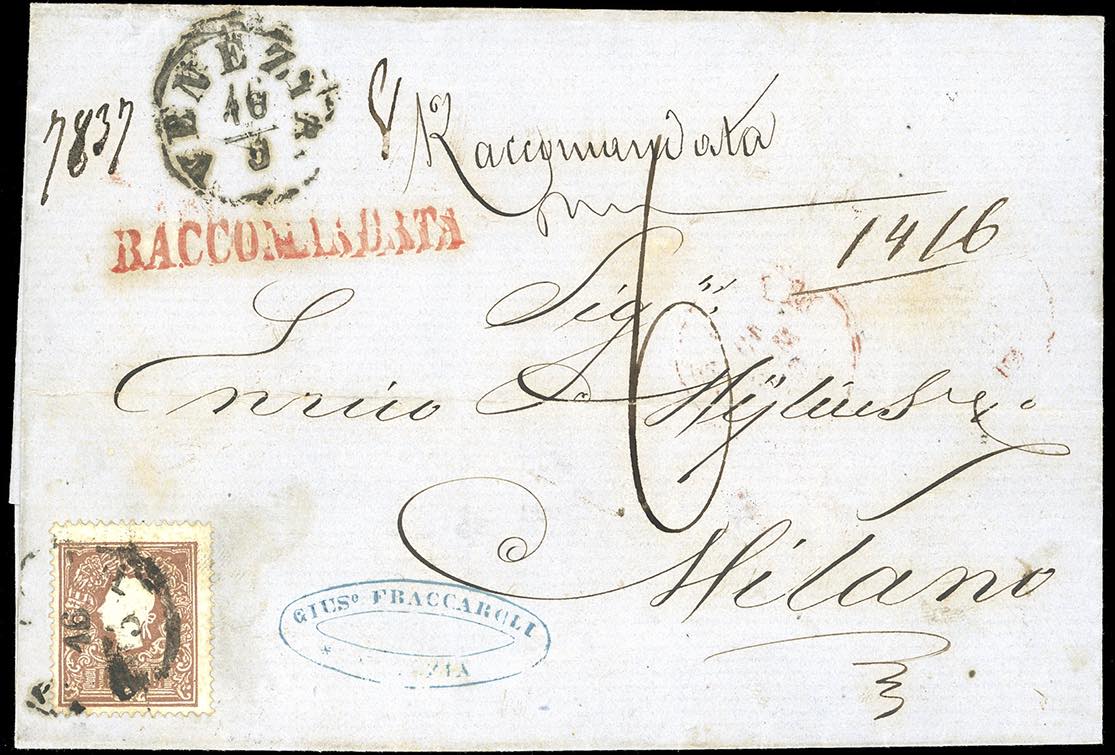 7837
VENEZIA
16
9
Raccomandata
RACCOMADATA
1416
Sig.ri
Enrico Mylius & Co.
Milano
6
16
GIUSe. FRACCAROLI